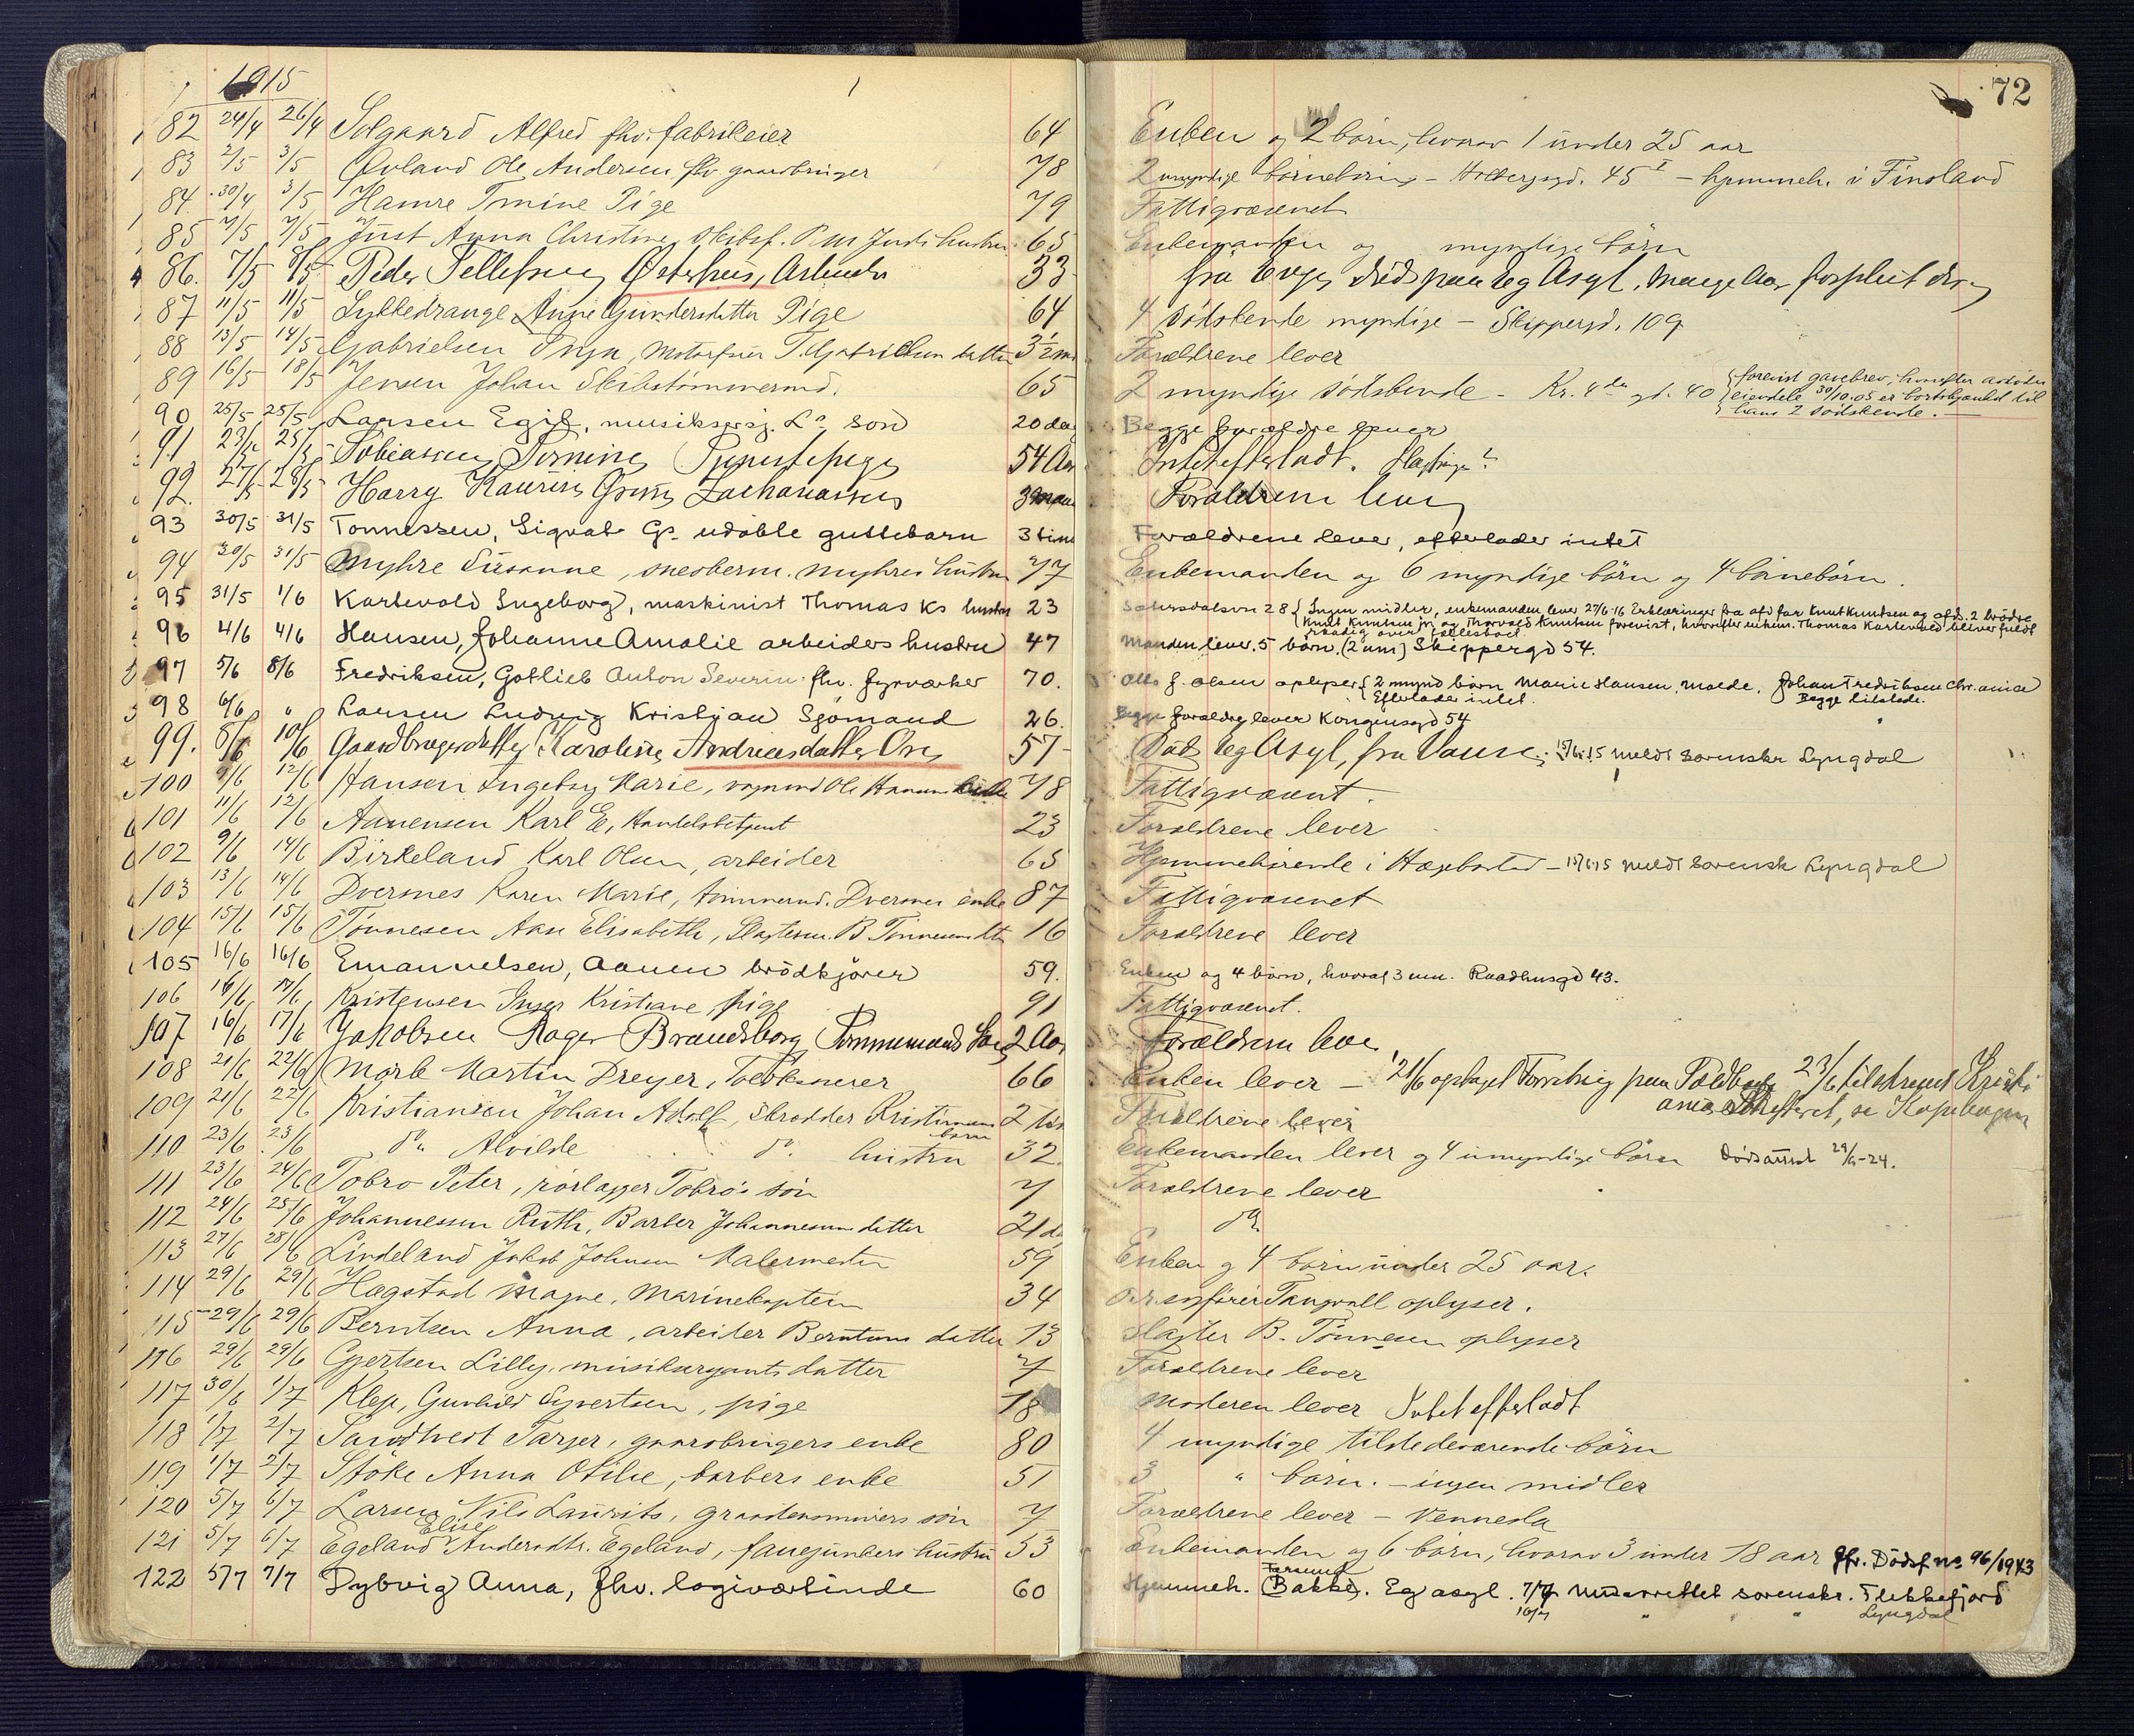 1915
72
82 24/4 26/4 Solgaard Alfred fhv. fabrikeier 64 Enken og 2 børn, hvorav 1 under 25 aar
83 2/5 3/5 Øvland Ole Andersen fhv gaardbruger 78 2 umyndige børnebørn - Holbergsgd. 45 I - hjemmeh. i Finsland
84 30/4 3/5 Hamre Trine Pige 79 Fattigvæsenet
85 7/5 7/5 Just Anna Christine, skibsf. P M Justs hustru 65 Enkemanden og myndige børn
86. 7/5 8/5 Peder Tellefsen Østerhus, Arbeider 33 fra Evje, død paa Eg Asyl, mange Aar forpleiet der
87 11/5 11/5 Lykkedrange Anne Gundersdatter Pige 64 4 sødskende myndige - Skippergd. 109
88 13/5 14/5 Gabrielsen Borgny, Motorfører T. Gabrielsens datter 3 1/2 m Forældrene lever
89 16/5 18/5 Jensen Johan Skibstømmermd. 65 2 myndige sødskende - Kr. 4de gd. 40 { forevist gavebrev, hvorefter avdødes
eiendele 30/10.05 er bortskjænket til
hans 2 sødskende.
90 25/5 25/5 Larsen Egil, musiksersj. L's søn 20 da Begge forældre lever
91 23/5 25/5 Tobiassen Tomine Tjenestepige 54 Aar Intet efterladt.
92. 27/5 28/5 Harry Kaurin Zachariassen 3 maan Forældrene lever
93 30/5 31/5 Tønnessen, Sigvat G's udøbte guttebarn 3 tim Forældrene lever, efterlader intet
94 30/5 31/5 Myhre Susanne, snedkerm. Myhres hustru 77 Enkemanden og 6 myndige børn og 4 børnebørn.
95 31/5 1/6 Kartevold Ingeborg, maskinist Thomas Ks hustru 23 Sætersdalsvn 28 { Ingen midler, enkemanden lever 27/6-16 Erklæringer fra afd far Knut Knutsen og afds. 2 brødre
Knut Knutsen jr. og Thorvald Knutsen forevist, hvorefter enkem. Thomas Kartevold bliver fuldt
raadig over fællesboet
96 4/6 4/6 Hansen, Johanne Amalie arbeiders hustru 47 Manden lever. 5 børn. (2 um) Skippergd 54.
97 5/6 8/6 Fredriksen, Gotlieb Anton Severin fhv. fyrværker 70. Otto J. Olsen oplyser { 2 mynd børn Marie Hansen, Molde, Johan Fredriksen Chr. ania
Efterlader intet. Begge tilstede.
98 6/6 " Larsen Ludvig Kristjan Sjømand 26. Begge forældre lever Kongensgd 54
99. 8/6 10/6 Gaardbrugerdatter Karoline Andreasdatter Ore 57 Død Eg Asyl, fra Vanse; 15/6.15 meldt sorenskr Lyngdal
100 9/6 12/6 Hansen Ingeborg Marie, vognmd Ole Hansens enke 78 Fattigvæsent.
101 11/6 12/6 Aanensen Karl E, Handelsbetjent 23 Forældrene lever
102 9/6 14/6 Birkeland Karl Olsen, arbeider 65 Hjemmehørende i Hægebostad - 15/6.15 meldt sorensk Lyngdal
103 13/6 14/6 Dversnes Karen Marie, tømmermd. Dversnes enke 87 Fattigvæsenet
104 15/6 15/6 Tønnesen Aase Elisabeth, Slagterm. B Tønnesens dtr 16 Forældrene lever
105 16/6 16/6 Emanuelsen, Aanen brødkjører 59. Enken og 4 børn, hvoraf 3 um. Raadhusgd 43.
106 16/6 17/6 Kristensen Inger Kristiane pige 91 Fattigvæsenet.
107 16/6 17/6 Jakobsen Roger Brandsborg Tømmermands Søn 2 Aar Forældrene lever
108 21/6 22/6 Mørk Martin Dreyer, Toldkasserer 66 Enken lever - 21/6 optaget Forretning paa Toldboden 23/6 tilskrevet Kristi
ania Skifteret, se Kopibogen
109 21/6 22/6 Kristiansen Johan Adolf, skrædder Kristiansens barn 2 Forældrene lever
110 23/6 23/6 do Alvilde do. hustru 32 Enkemanden lever og 4 umyndige børn Dødsattest 29/4-24.
111 23/6 24/6 Tobro Peter, rørlægger Tobro's søn 7 Forældrene lever
112 24/6 25/6 Johannessen Ruth, Barber Johannesens datter 21 da do
113 27/6 28/6 Lindeland Jakob Johnsen Malermester 59 Enken og 4 børn under 25 aar.
114 29/6 29/6 Hægstad Magne, Marinekaptein 34 O.r.sagfører Tangvall oplyser.
115 29/6 29/6 Berntsen Anna, arbeider Berntsens datter 13 Slagter B. Tønnesen oplyser
116 29/6 29/6 Gjertsen Lilly, musiksergants datter 7 Forældrene lever
117 30/6 1/7 Klep, Gunhild Syvertsen, pige 18 Moderen lever Intet efterladt
118 1/7 2/7 Sandtvedt Tarjer, gaardbrugers enke 80 4 myndige tilstedeværende børn
119 1/7 2/7 Støke Anna Otilie, barbers enke 51 3 " børn. - ingen midler
120 5/7 6/7 Larsen Nils Laurits, graadensmiers søn 7 Forældrene lever - Vennesla
121 5/7 6/7 Egeland Elise Andersdtr. Egeland, fanejunkers hustru 53 Enkemanden og 6 børn, hvorav 3 under 18 aar Jfr. Dødsf no 96/1943
122 5/7 7/7 Dybvig Anna, fhv. logiværtinde 60 Hjemmeh. Farsund (Bakke). Eg asyl. 7/7 underrettet sorenskr. Flekkefjord
10/7 " " " Lyngdal